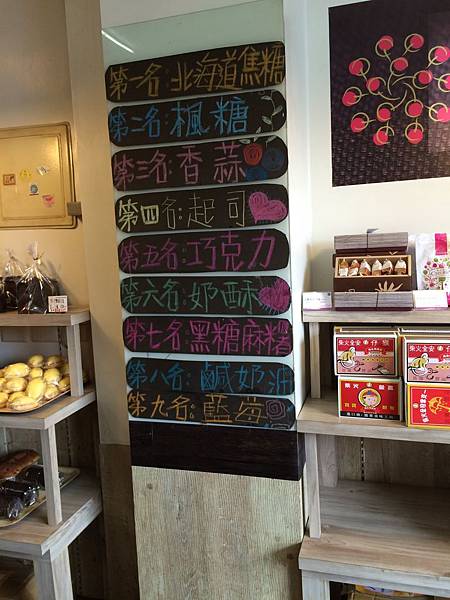 第一名:北海道焦糖
第二名:楓糖
第三名:香蒜
第四名:起司
第五名:巧克力
第六名:奶酥
第七名:黑糖麻糬
第八名:鹹奶油
第九名:藍莓